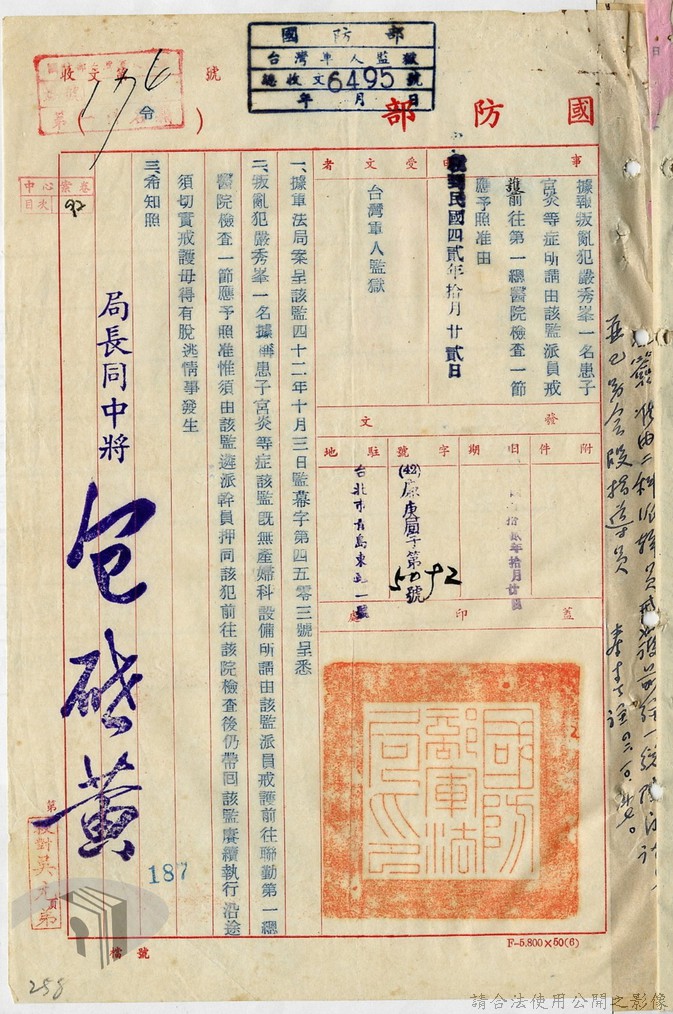 國防部
台灣軍人監獄
總收文6495號
年 月 日
收文 號
國防部
(令)
事由
據報叛亂犯嚴秀峯一名患子
宮炎等症所請由該監派員戒
護前往第一總醫院檢查一節
應予照准由
民國四貳年拾月廿貳日
受文者
台灣軍人監獄
發文
附件
日期
字號
駐地
(42)
號
台北市青島東路一號
蓋印處
國防部軍法局之印
一、據軍法局案呈該監四十二年十月三日監幕字第四五零三號呈悉
二、叛亂犯嚴秀峯一名據稱患子宮炎等症該監既無產婦科設備所請由該監派員戒護前往聯勤第一總
醫院檢查一節應予照准惟須由該監遴派幹員押同該犯前往該院檢查後仍帶回該監賡續執行沿途
須切實戒護毋得有脫逃情事發生
三、希知照
局長同中將 包啓黃
中心案卷
目次
92
校對吳
187
檔號
F-5,800×50(6)
258
請合法使用公開之影像